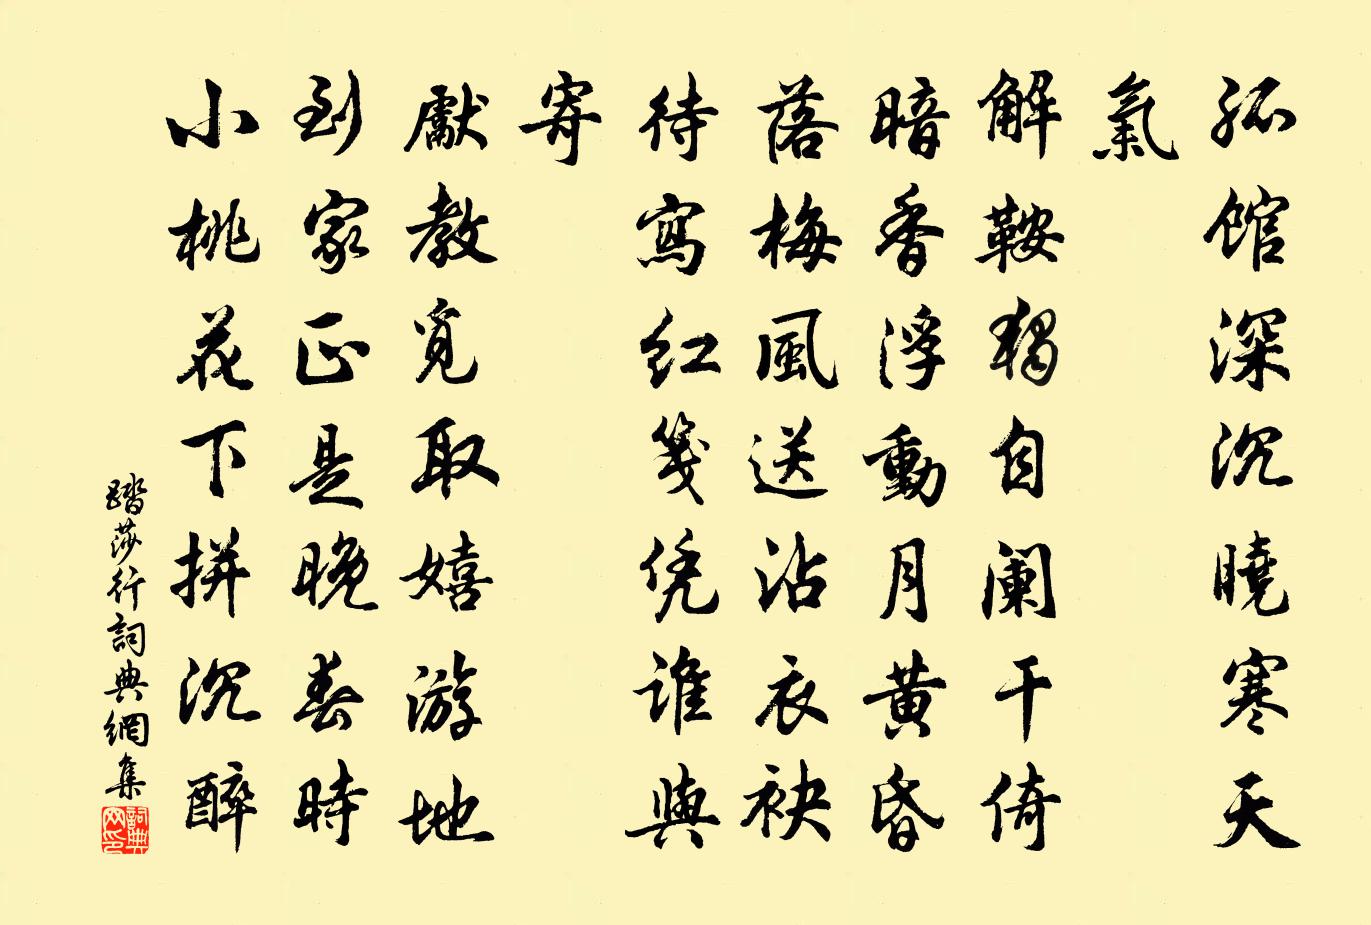 孤馆深沉曉寒天
氣
解鞍獨自阑干倚
暗香浮動月黄昏
落梅風送沾衣袂
待寫红箋凭谁與
寄
獻教覓取嬉游地
到家正是晚春時
小桃花下拼沉醉
踏莎行詞典網集
詞典
网印